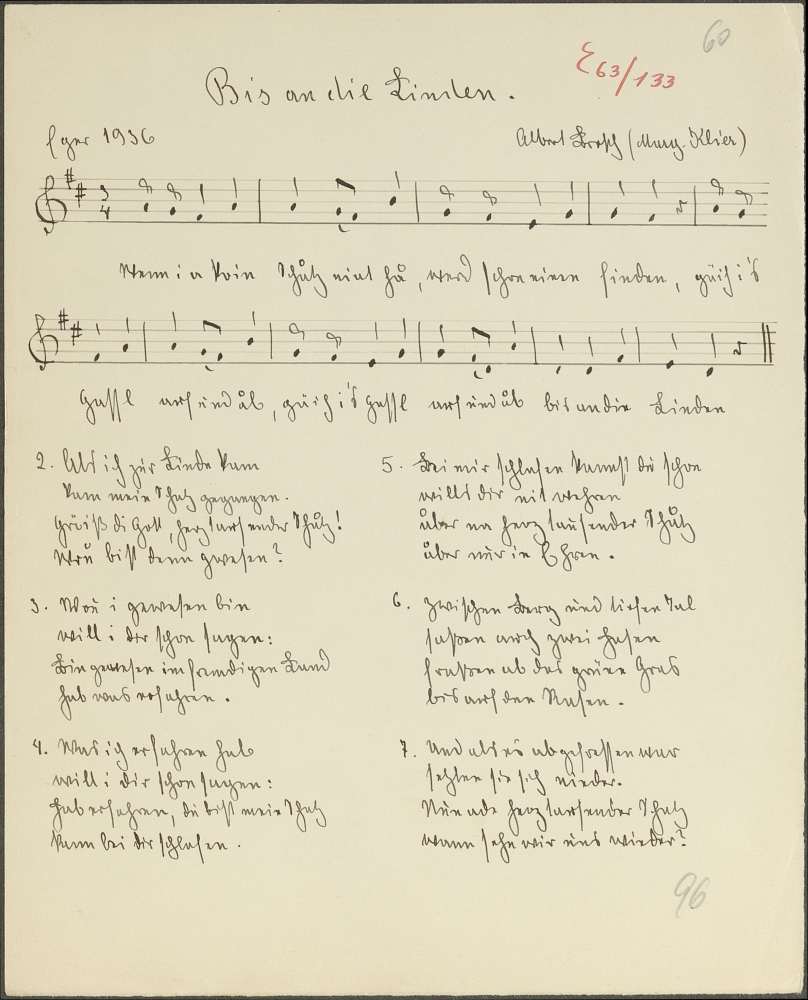 60
E 63/133
Bis an die Linden.
Eger 1936
Albert Brosch (Marg. Klier)
3
4
Wenn i a koin Schåtz niat hå, werd schon einen finden, gäih i's
Gassl auf und åb, gäih i's Gassl auf und åb bis an die Linden
2. Als ich zur Linde kam
kam mein Schatz gegangen.
Grüiß di Gott, herztausender Schåtz!
Wou bist denn gwesen?
3. Wou i gewesen bin
will i dir schon sagen:
Bin gewesen im fremdigen Land
hab was erfahren.
4. Was ich erfahren hab
will i dir schon sagen:
Hab erfahren, du bist mein Schatz
kann bei dir schlafen.
5. Bei mir schlafen kannst du schon
will's dir nit wehren
åber na herztausender Schåtz
åber nur in Ehren.
6. Zwischen Berg und tiefen Tal
saßen auch zwei Hasen
fraßen ab das grüne Gras
bis auf den Rasen.
7. Und als es abgefressen war
setzten sie sich nieder.
Nun ade herztausender Schatz
wann sehn wir uns wieder?
96